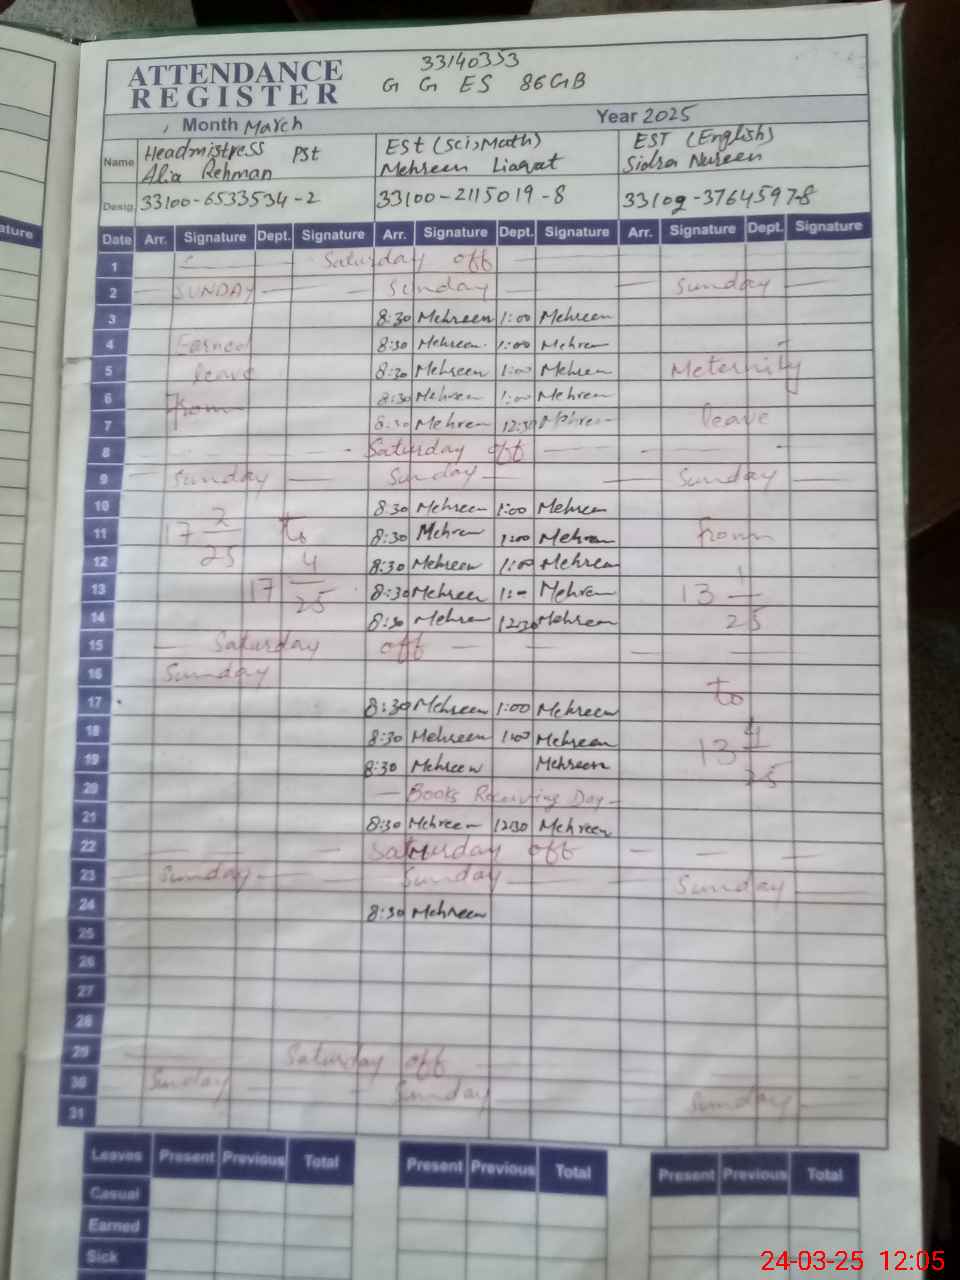 ature
33140353
ATTENDANCE REGISTER
G G ES 86GB
Month March Year 2025
Name Headmistress PSt Alia Rehman ESt (Sci,Math) Mehreen Liaqat EST (English) Sidra Nureen
Desig. 33100-6533534-2 33100-2115019-8 33109-3764597-8
Date Arr. Signature Dept. Signature Arr. Signature Dept. Signature Arr. Signature Dept. Signature
1 Saturday off
2 SUNDAY Sunday Sunday
3 8:30 Mehreen 1:00 Mehreen
4 Earned 8:30 Mehreen 1:00 Mehren
5 leave 8:30 Mehreen 1:00 Mehren Meternity
6 from 8:30 Mehreen 1:00 Mehren
7 8:30 Mehren 12:30 Mehren leave
8 Saturday off
9 Sunday Sunday Sunday
10 8:30 Mehreen 1:00 Mehreen
11 17 2/25 to 8:30 Mehren 1:00 Mehren from
12 8:30 Mehreen 1:00 Mehreen
13 17 4/25 8:30 Mehreen 1:- Mehren 13 1/25
14 8:30 Mehren 12:30 Mehreen
15 Saturday off
16 Sunday
17 8:30 Mehreen 1:00 Mehreen to
18 8:30 Mehreen 1:00 Mehreen
19 8:30 Mehreen Mehreen 13 4/25
20 Books Day
21 8:30 Mehreen 12:30 Mehreen
22 Saturday off
23 Sunday Sunday Sunday
24 8:30 Mehreen
25
26
27
28
29 Saturday off
30 Sunday Sunday Sunday
31
Leaves Present Previous Total Present Previous Total Present Previous Total
Casual
Earned
Sick
24-03-25 12:05